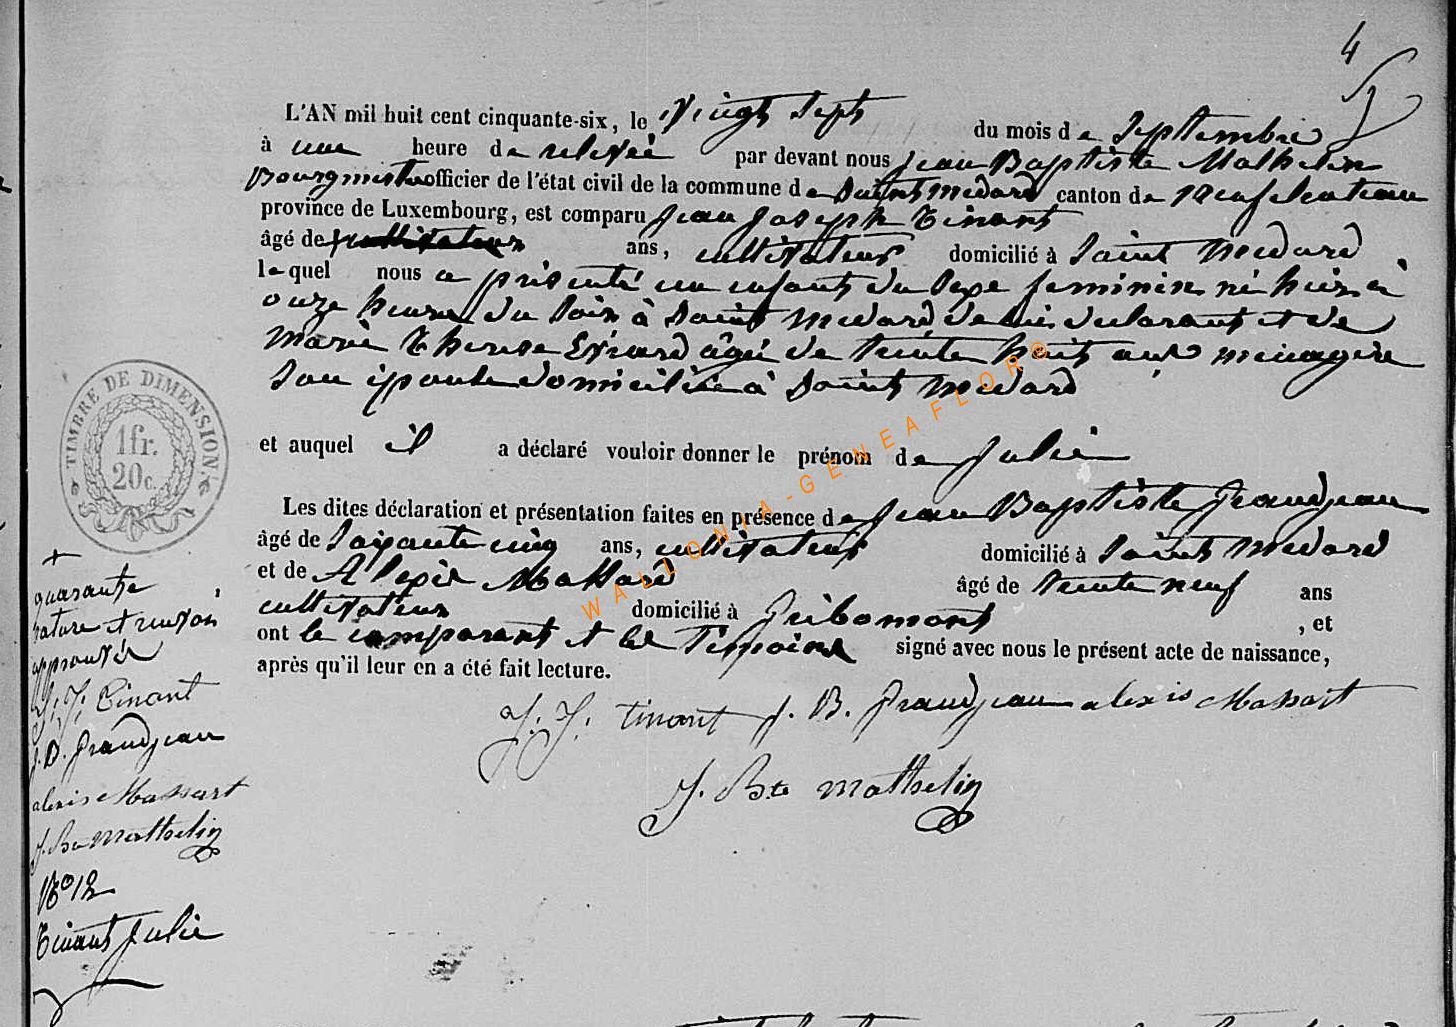 4
L'AN mil huit cent cinquante-six, le vingt sept du mois de Septembre
à une heure de relevée par devant nous Jean Baptiste Mathelin
Bourgmestre officier de l'état civil de la commune de Saint Médard canton de Neufchateau
province de Luxembourg, est comparu Jean Joseph Tinant
âgé de cultivateur ans, cultivateur domicilié à Saint Médard
lequel nous a présenté un enfant du sexe féminin né hier à
onze heures du soir à Saint Médard de lui déclarant et de
Marie Therese Evrard âgée de trente huit ans ménagère
son épouse domiciliée à Saint Médard
et auquel il a déclaré vouloir donner le prénom de Julie
Les dites déclaration et présentation faites en présence de Jean Baptiste Grandjean
âgé de soixante cinq ans, cultivateur domicilié à Saint Médard
et de Alexis Massard âgé de trente neuf ans
cultivateur domicilié à Gribomont, et
ont le comparant et les témoins signé avec nous le présent acte de naissance,
après qu'il leur en a été fait lecture.
J. J. Tinant J. B. Grandjean alexis Massart
J. Bte Mathelin
TIMBRE DE DIMENSION
1fr.
20c.
+
quarante
rature et renvoi
approuvés
J. J. Tinant
J. B. Grandjean
alexis Massart
J. Bte Mathelin
N° 12
Tinant Julie
WALLONIA-GENEAFLOR©